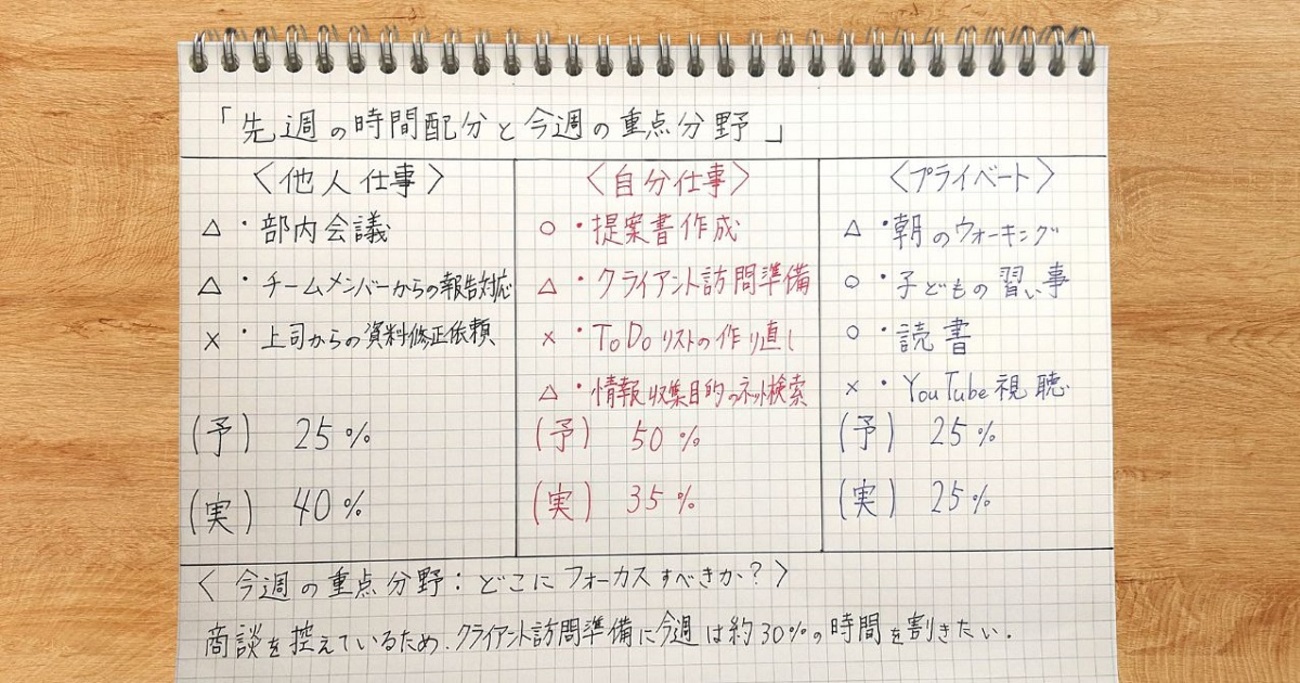 「先週の時間配分と今週の重点分野」
〈他人仕事〉
△・部内会議
△・チームメンバーからの報告対応
×・上司からの資料修正依頼
(予) 25%
(実) 40%
〈自分仕事〉
○・提案書作成
△・クライアント訪問準備
×・ToDoリストの作り直し
△・情報収集目的のネット検索
(予) 50%
(実) 35%
〈プライベート〉
△・朝のウォーキング
○・子どもの習い事
○・読書
×・YouTube視聴
(予) 25%
(実) 25%
〈今週の重点分野:どこにフォーカスすべきか?〉
商談を控えているため、クライアント訪問準備に今週は約30%の時間を割きたい.